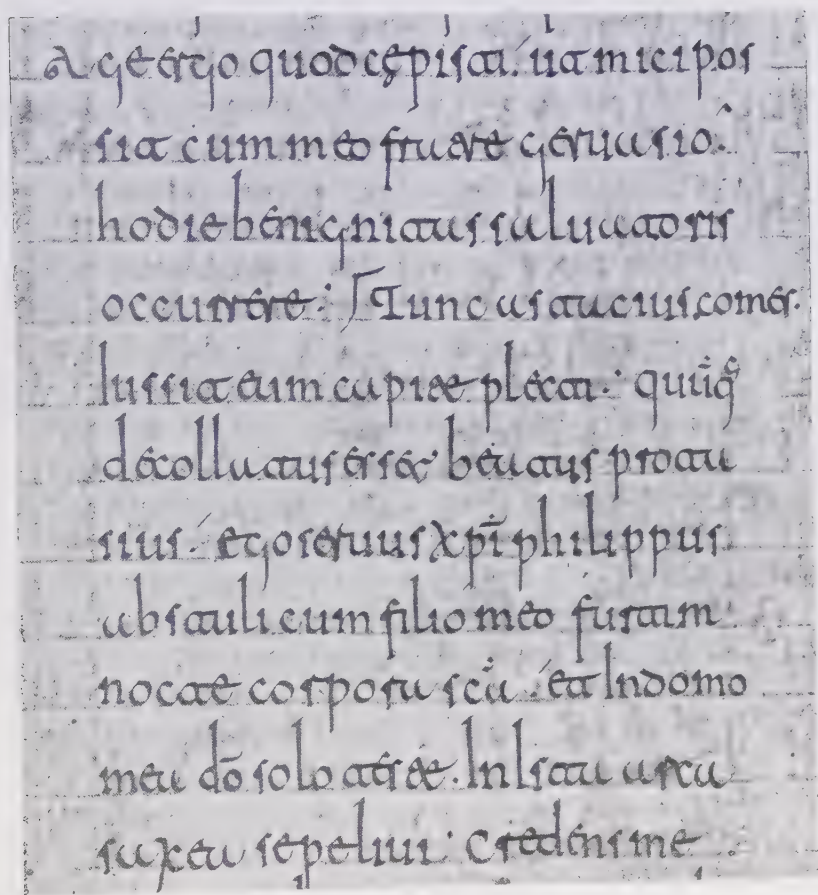 Age ergo quod cępisti. ut mici pos
sit cum meo fratre geruasio.
hodie benignitas saluatoris
occurrere: Tunc astacius comes.
Iussit eum capite plecti: quūq;
decollatus esset beatus prota
sius. ego seruus xp̄i philippus
abstuli cum filio meo furtim
nocte corpora scā. et In domo
mea dō solo teste. In Ista arca
saxea sepeliui. Credens me